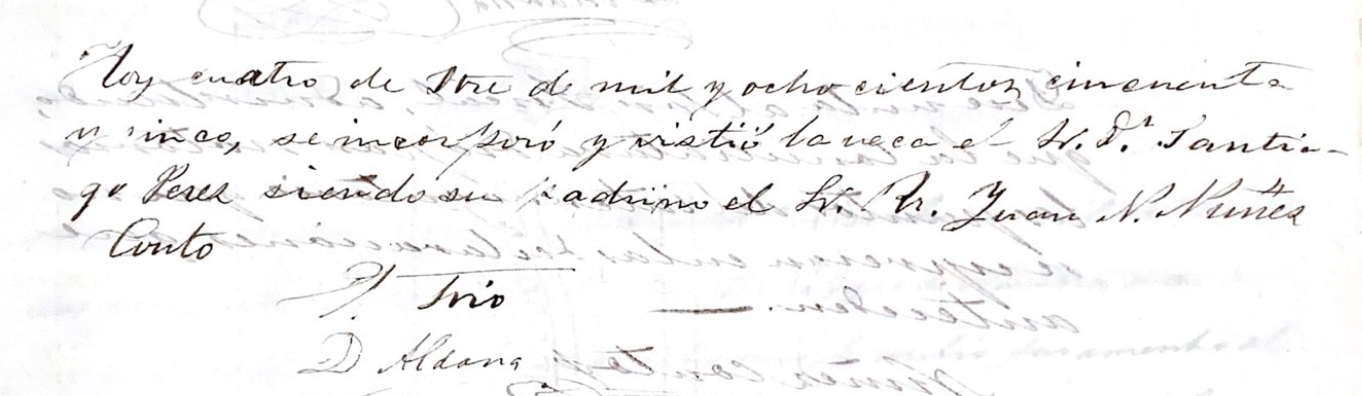 Hoy cuatro de de mil y ochocientos cincuenta
y cinco, se incorporó y vistió la veca el Sr. Dn. Santia-
go Perez siendo su padrino el Sr. Dr. Juan N. Nuñez
Conto
Trio
D Aldana